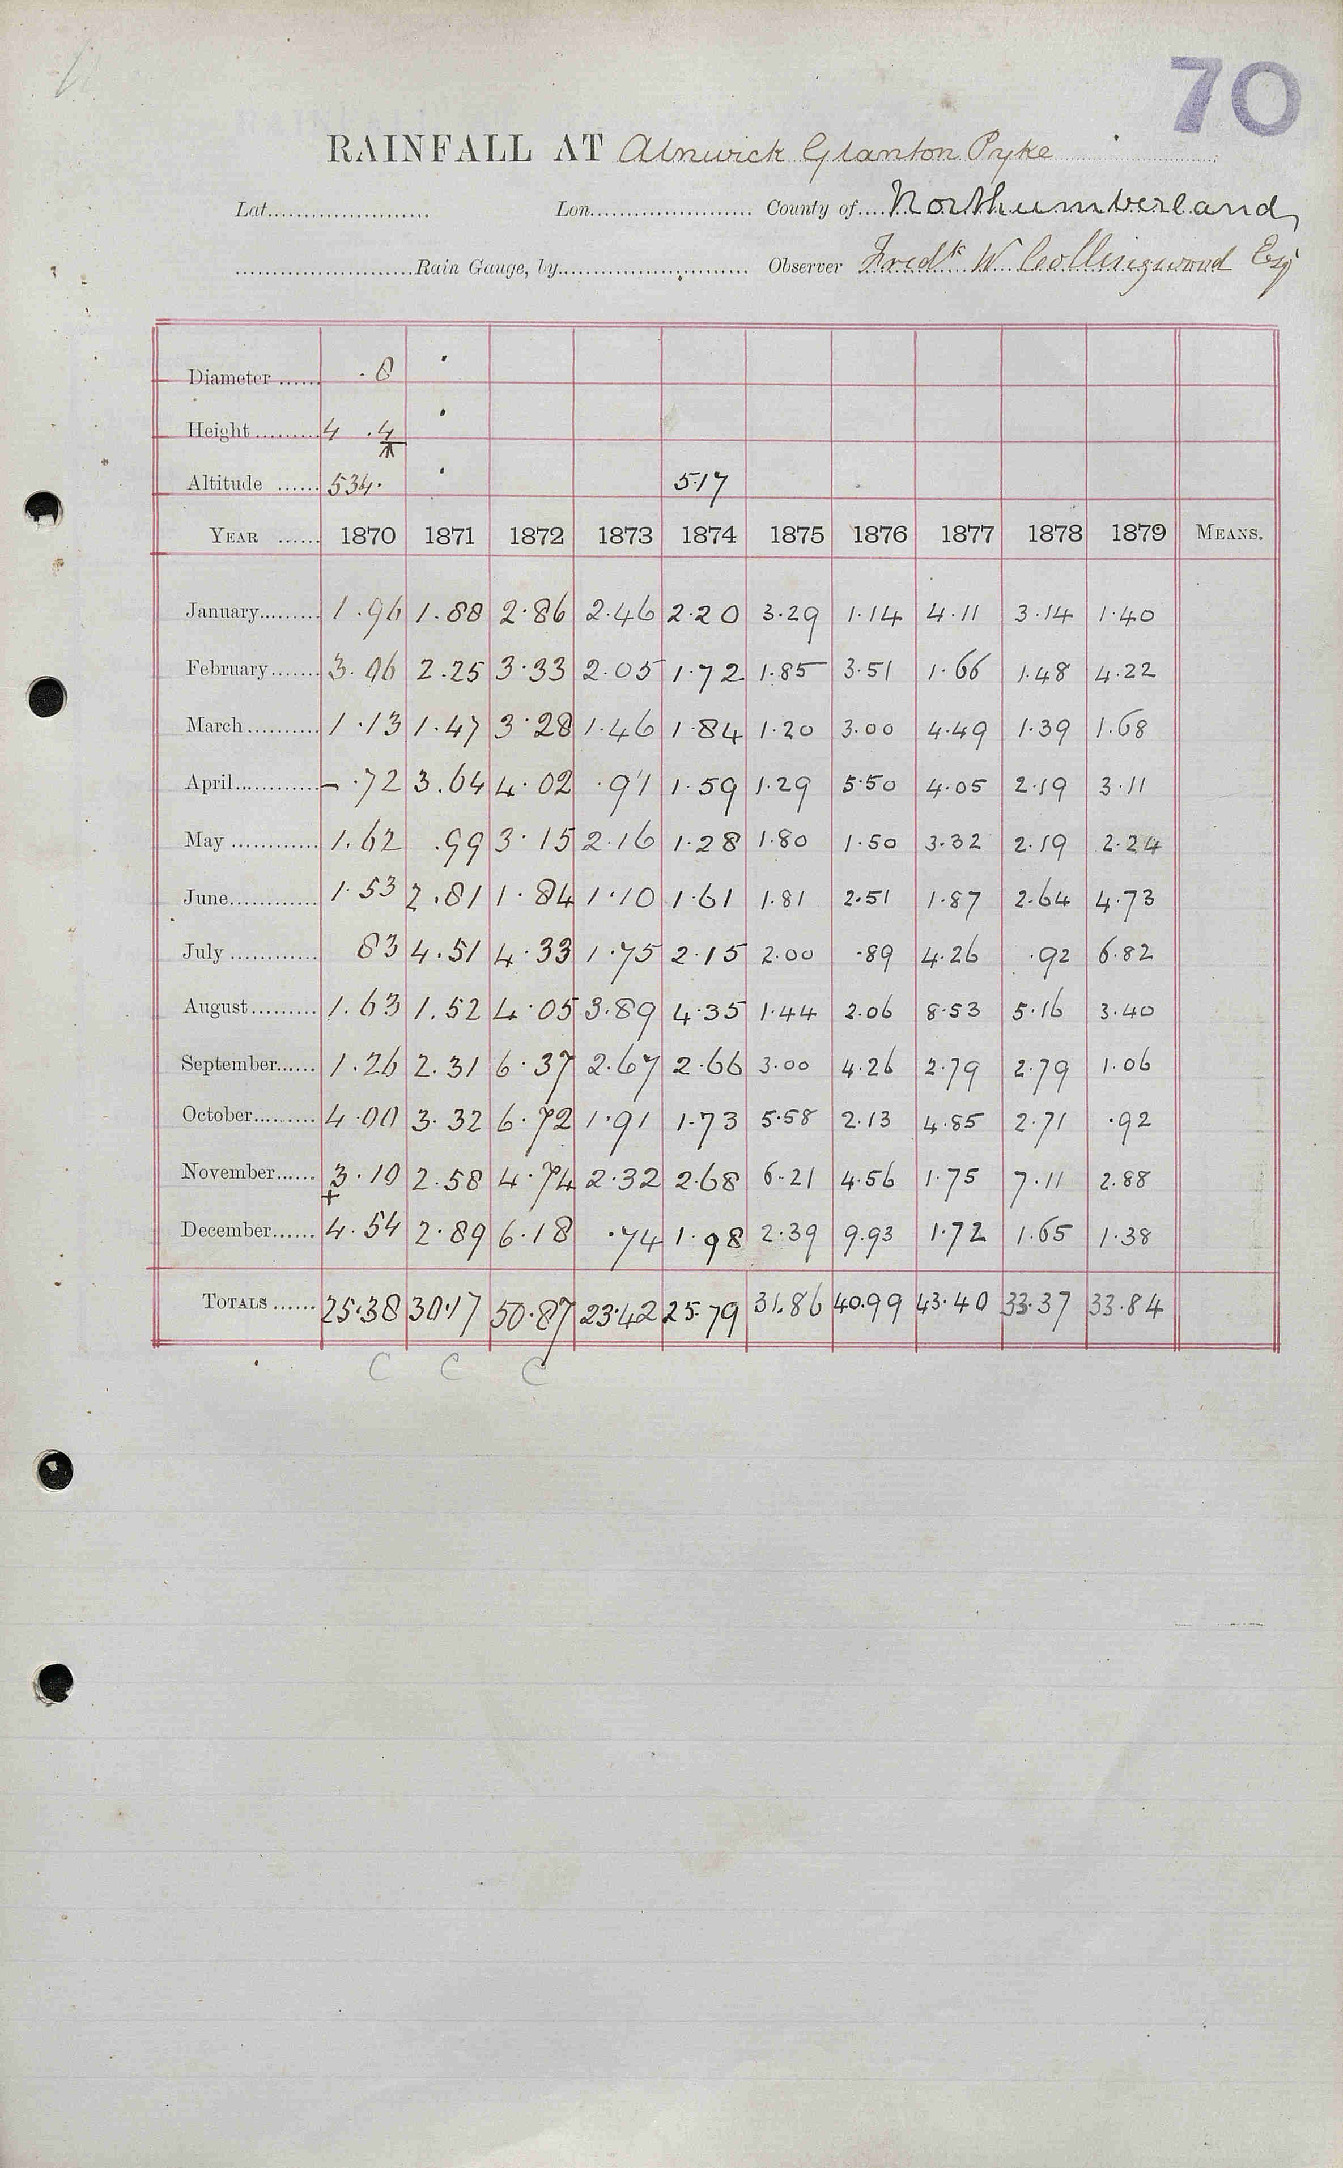 70
RAINFALL AT Alnwick Glanton Pyke
Lat. Lon. County of Northumberland
Rain Gauge, by Observer Fredk W Collingwood Esq
Diameter ·8
Height 4 .4
Altitude 534· 517
YEAR 1870 1871 1872 1873 1874 1875 1876 1877 1878 1879 MEANS.
January 1.96 1.88 2.86 2.46 2.20 3.29 1.14 4.11 3.14 1.40
February 3.06 2.25 3.33 2.05 1.72 1.85 3.51 1.66 1.48 4.22
March 1.13 1.47 3.28 1.46 1.84 1.20 3.00 4.49 1.39 1.68
April – .72 3.64 4.02 .91 1.59 1.29 5.50 4.05 2.19 3.11
May 1.62 .99 3.15 2.16 1.28 1.80 1.50 3.32 2.19 2.24
June 1.53 2.81 1.84 1.10 1.61 1.81 2.51 1.87 2.64 4.73
July 83 4.51 4.33 1.75 2.15 2.00 .89 4.26 .92 6.82
August 1.63 1.52 4.05 3.89 4.35 1.44 2.06 8.53 5.16 3.40
September 1.26 2.31 6.37 2.67 2.66 3.00 4.26 2.79 2.79 1.06
October 4.00 3.32 6.72 1.91 1.73 5.58 2.13 4.85 2.71 .92
November 3.10 2.58 4.74 2.32 2.68 6.21 4.56 1.75 7.11 2.88
+
December 4.54 2.89 6.18 .74 1.98 2.39 9.93 1.72 1.65 1.38
TOTALS 25.38 30.17 50.87 23.42 25.79 31.86 40.99 43.40 33.37 33.84
C C C